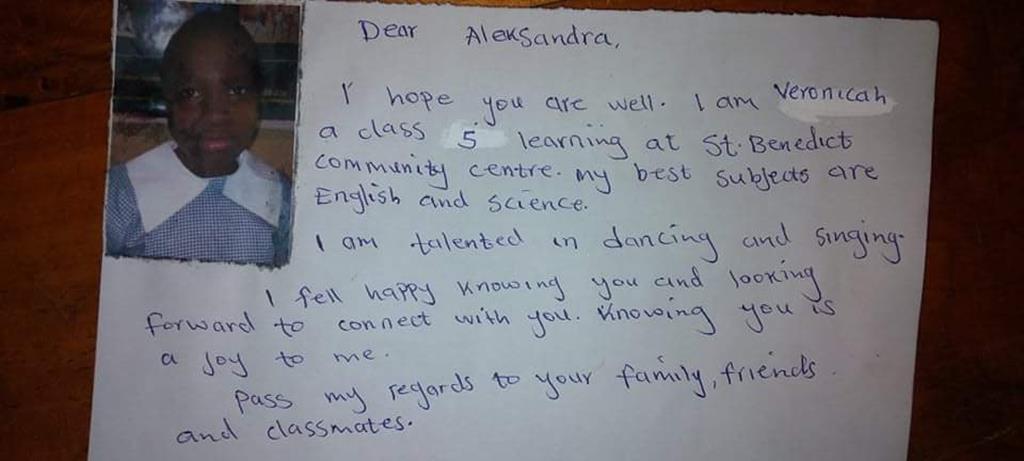 Dear Aleksandra,
I hope you are well. I am Veronicah
a class 5 learning at St. Benedict
community centre. my best subjects are
English and science.
I am talented in dancing and singing.
I fell happy knowing you and looking
forward to connect with you. Knowing you is
a joy to me.
Pass my regards to your family, friends
and classmates.